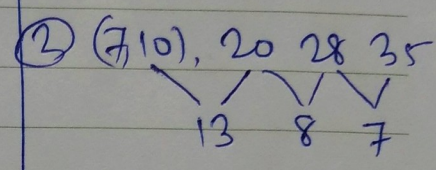 ② (7,10), 20 28 35
13 8 7